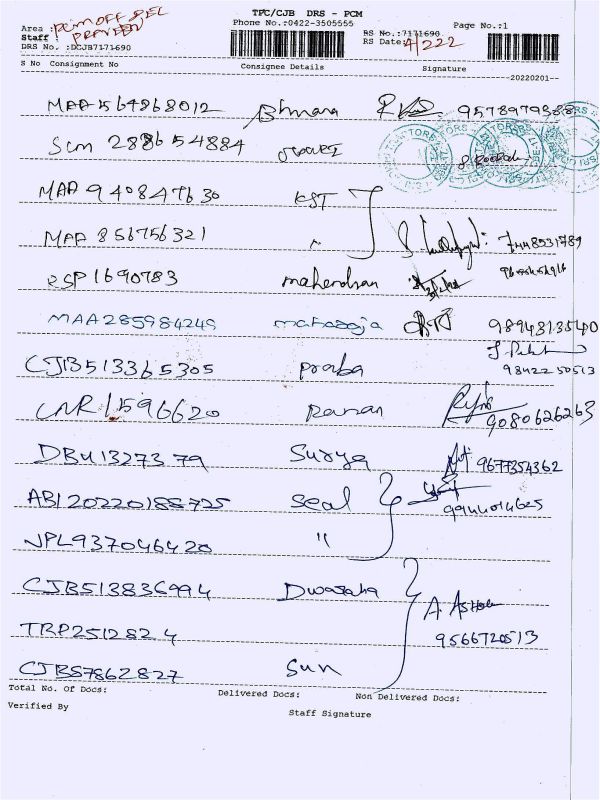 TPC/CJB DRS - PCM
Phone No.:0422-3505555
Page No.:1
Area : PCM OFF DEL
Staff PRAVEEN
DRS No. :DCJB7171690
RS No.:7171690
RS Date: 4/222
S No Consignment No Consignee Details Signature
20220201
MAA564868012 Bhmara 9578979388
Scm 288654884
MAA 940847630 KST
MAA 856756321 " 7448531789
RSP1690783 mahendran
MAA285984249 maharaja 9894813540
CJB513365305 praba 9842250513
CNR1596620 Raman 9080626263
DBU1327379 Surya 9677354362
ABI20220188725 Seal 9944014625
NPL937046420 "
CJB513836994 Dwaraka A. Ashok
TRP2512824 9566720513
CJB57862827 Sun
Total No. Of Docs: Delivered Docs: Non Delivered Docs:
Verified By
Staff Signature